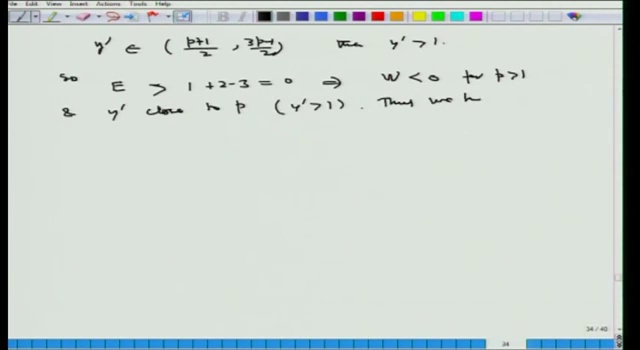 File View Insert Actions Tools Help
y' ∈ ( p+1/2 , 3p-1/2 ) then y' > 1.
so E > 1 + 2 - 3 = 0 ⇒ W < 0 for p > 1
& y' close to p (y' > 1). Thus we h
34 / 40
34